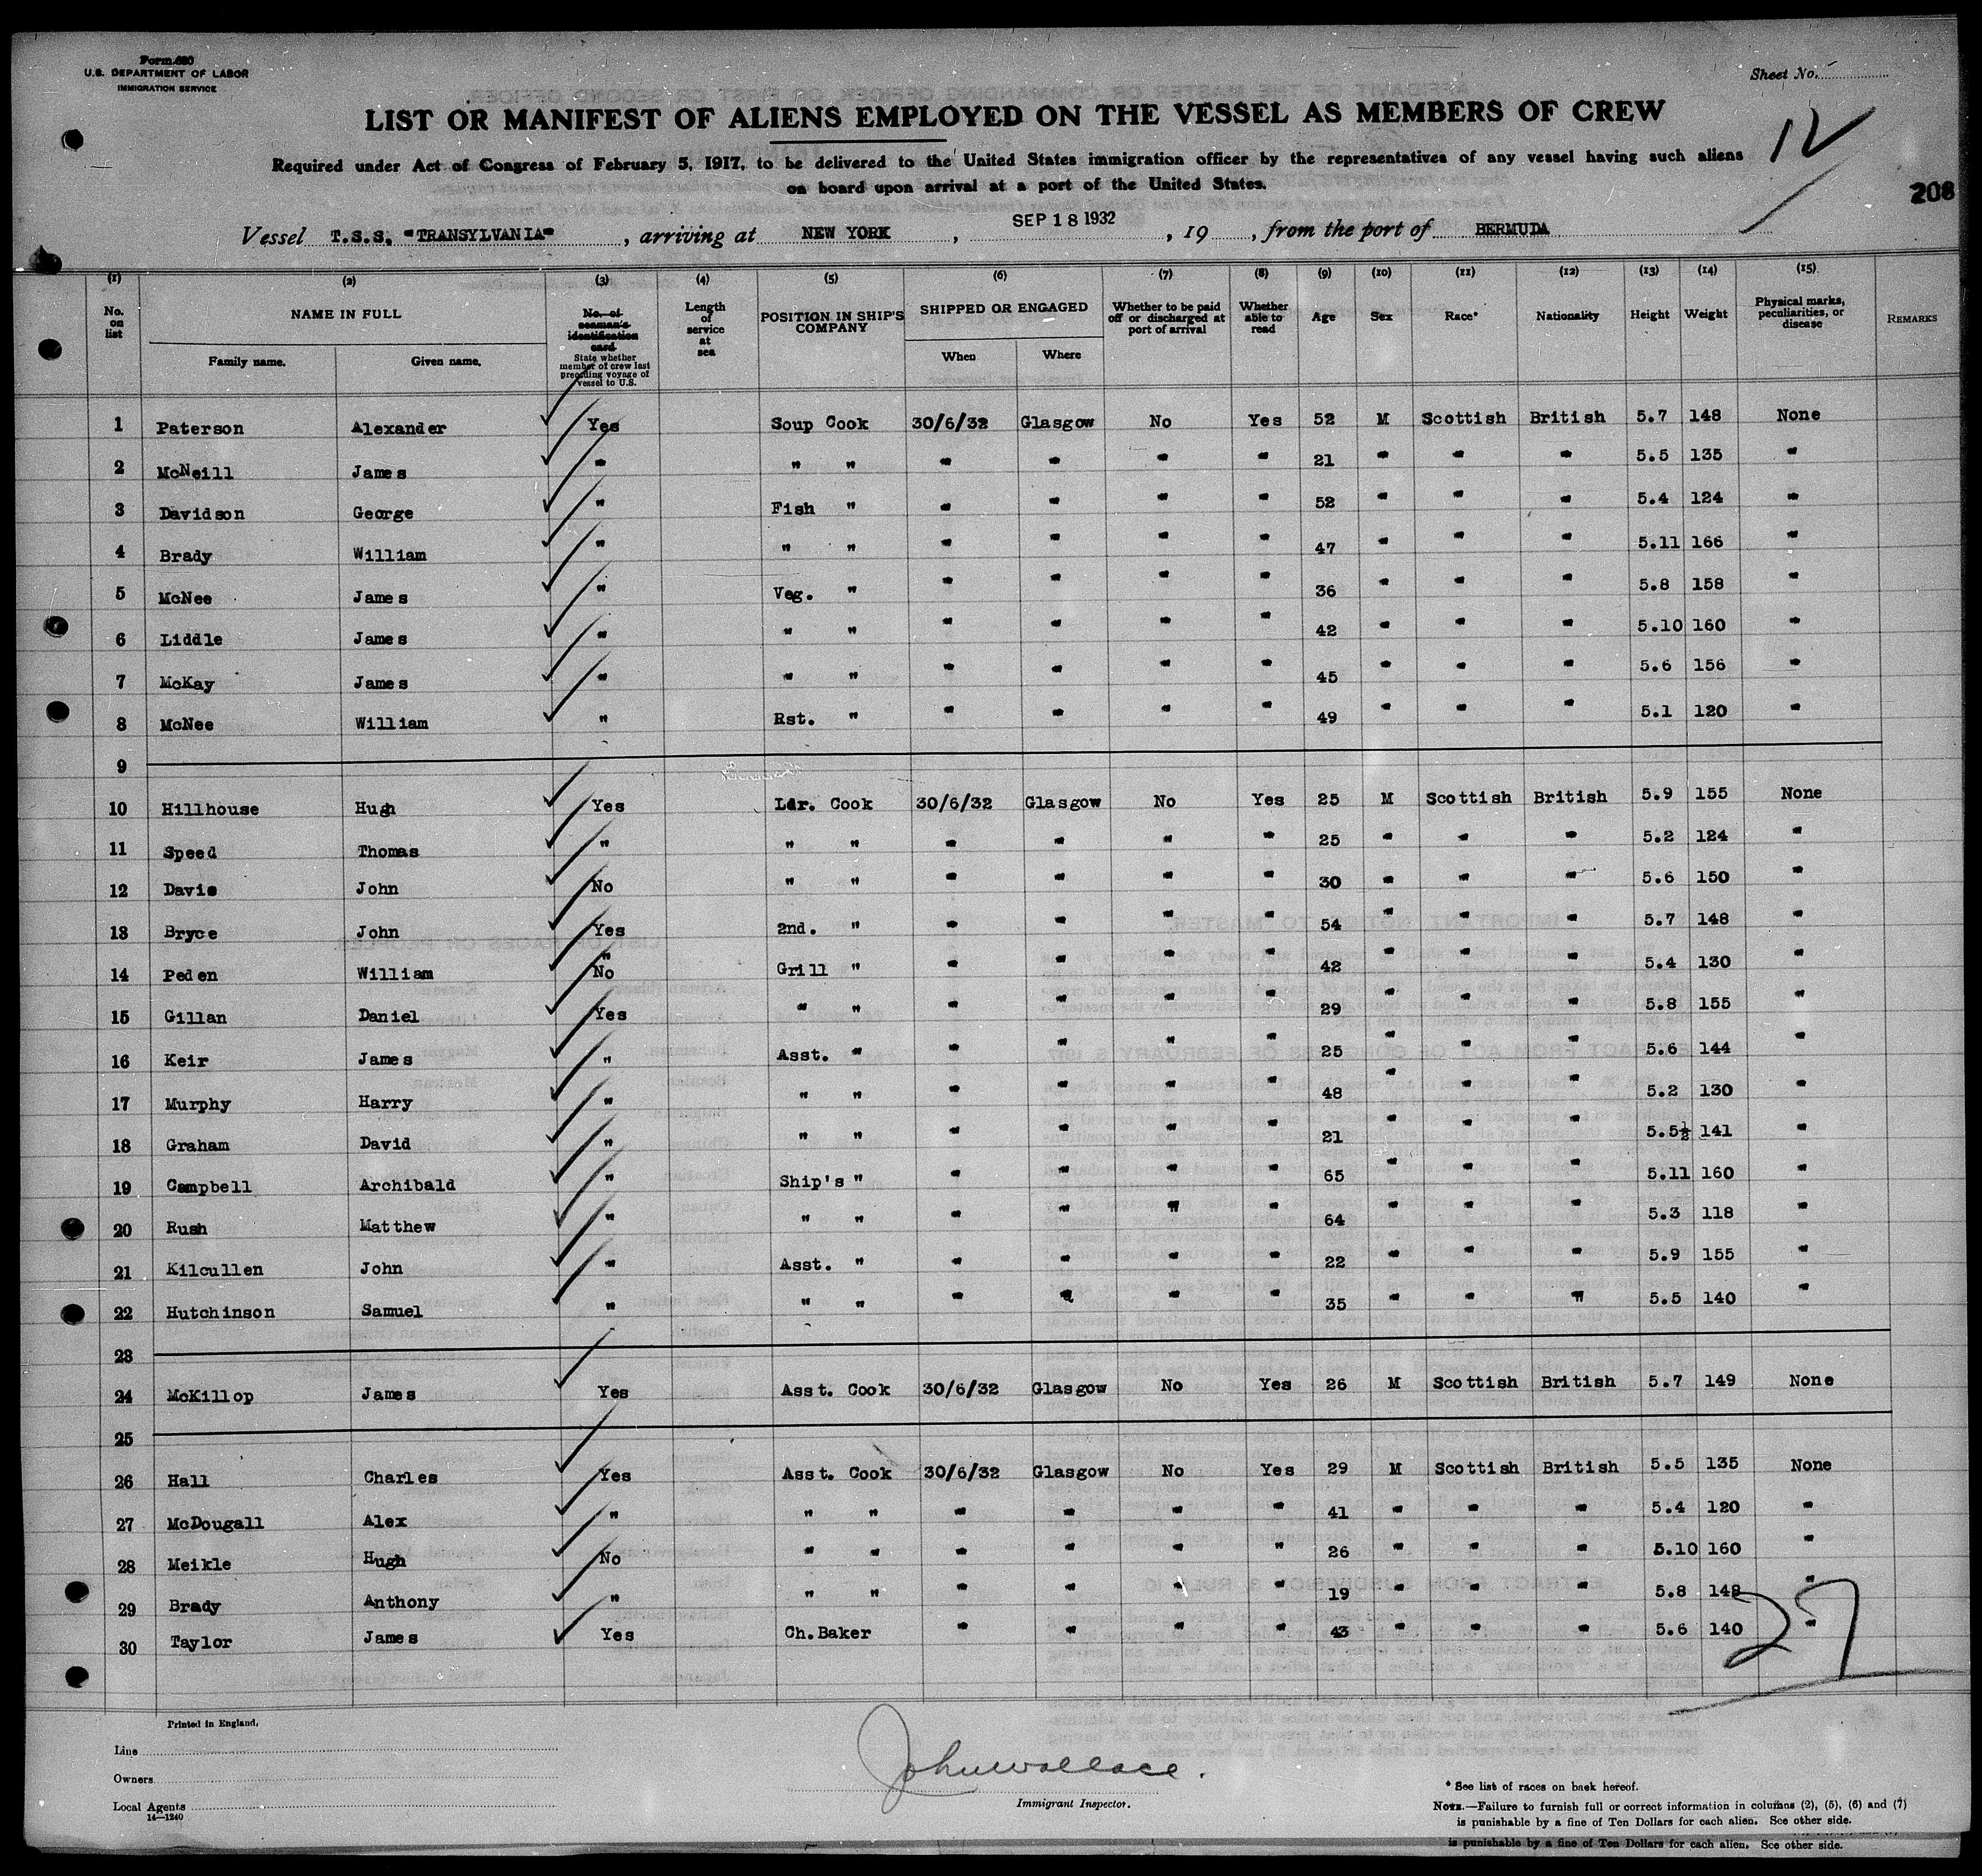 Form 680
U.S. DEPARTMENT OF LABOR
IMMIGRATION SERVICE
Sheet No.
LIST OR MANIFEST OF ALIENS EMPLOYED ON THE VESSEL AS MEMBERS OF CREW
12
Required under Act of Congress of February 5, 1917, to be delivered to the United States immigration officer by the representatives of any vessel having such aliens
on board upon arrival at a port of the United States.
208
Vessel T.S.S. "TRANSYLVANIA", arriving at NEW YORK, SEP 18 1932, 19, from the port of BERMUDA
(1) (2) (3) (4) (5) (6) (7) (8) (9) (10) (11) (12) (13) (14) (15)
No. on list
NAME IN FULL
Family name. Given name.
No. of seaman's identification card.
State whether member of crew last preceding voyage of vessel to U.S.
Length of service at sea
POSITION IN SHIP'S COMPANY
SHIPPED OR ENGAGED
When Where
Whether to be paid off or discharged at port of arrival
Whether able to read
Age
Sex
Race*
Nationality
Height
Weight
Physical marks, peculiarities, or disease
REMARKS
1 Paterson Alexander Yes Soup Cook 30/6/32 Glasgow No Yes 52 M Scottish British 5.7 148 None
2 McNeill James " " " " " " " 21 " " " 5.5 135 "
3 Davidson George " Fish " " " " " 52 " " " 5.4 124 "
4 Brady William " " " " " " " 47 " " " 5.11 166 "
5 McNee James " Veg. " " " " " 36 " " " 5.8 158 "
6 Liddle James " " " " " " " 42 " " " 5.10 160 "
7 McKay James " " " " " " " 45 " " " 5.6 156 "
8 McNee William " Rst. " " " " " 49 " " " 5.1 120 "
9
10 Hillhouse Hugh Yes Ldr. Cook 30/6/32 Glasgow No Yes 25 M Scottish British 5.9 155 None
11 Speed Thomas " " " " " " " 25 " " " 5.2 124 "
12 Davie John No " " " " " " 30 " " " 5.6 150 "
13 Bryce John Yes 2nd. " " " " " 54 " " " 5.7 148 "
14 Peden William " No Grill " " " " " 42 " " " 5.4 130 "
15 Gillan Daniel Yes " " " " " " 29 " " " 5.8 155 "
16 Keir James " Asst. " " " " " 25 " " " 5.6 144 "
17 Murphy Harry " " " " " " " 48 " " " 5.2 130 "
18 Graham David " " " " " " " 21 " " " 5.5½ 141 "
19 Campbell Archibald " Ship's " " " " " 65 " " " 5.11 160 "
20 Rush Matthew " " " " " " " 64 " " " 5.3 118 "
21 Kilcullen John " Asst. " " " " " 22 " " " 5.9 155 "
22 Hutchinson Samuel " " " " " " " 35 " " " 5.5 140 "
23
24 McKillop James Yes Asst. Cook 30/6/32 Glasgow No Yes 26 M Scottish British 5.7 149 None
25
26 Hall Charles Yes Asst. Cook 30/6/32 Glasgow No Yes 29 M Scottish British 5.5 135 None
27 McDougall Alex " " " " " " " 41 " " " 5.4 120 "
28 Meikle Hugh No " " " " " " 26 " " " 5.10 160 "
29 Brady Anthony " " " " " " " 19 " " " 5.8 148 "
30 Taylor James Yes Ch.Baker " " " " 43 " " " 5.6 140 "
27
Printed in England.
Line
Owners
Local Agents
14—1240
John Wallace.
Immigrant Inspector.
* See list of races on back hereof.
NOTE.—Failure to furnish full or correct information in columns (2), (5), (6) and (7)
is punishable by a fine of Ten Dollars for each alien. See other side.
is punishable by a fine of Ten Dollars for each alien. See other side.